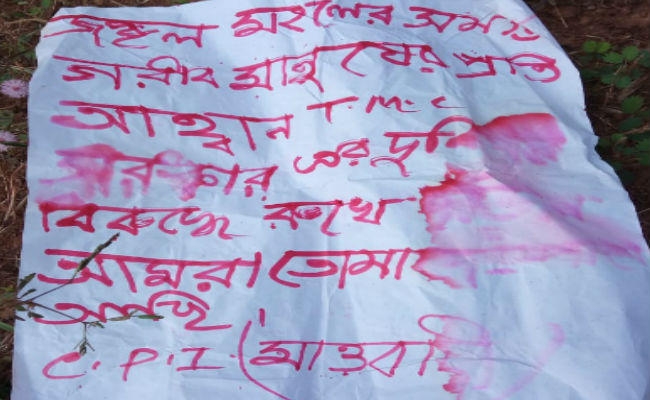 জঙ্গল মহলের সমস্ত
গরীব মানুষের প্রতি
আহ্বান T.M.C
সরকার এর
বিরুদ্ধে রুখে
আমরা তোমা
আছি
C.P.I (মাওবাদী)